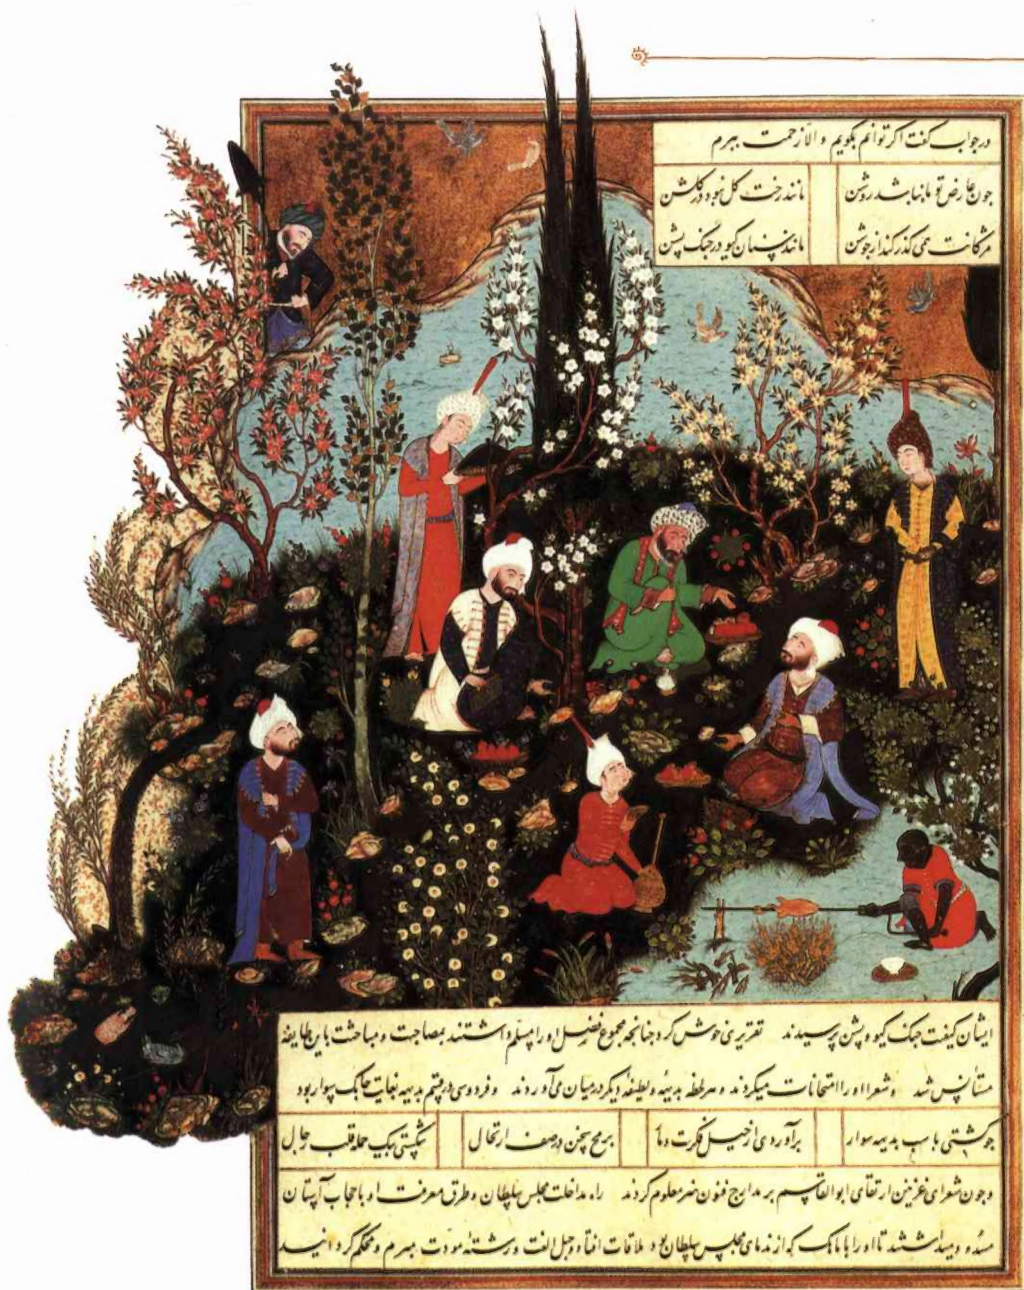 در جواب گفت اگر توانم بگویم و الا زحمت ببرم
چون عارض تو ماه نباشد روشن مانند رخت گل نبود در گلشن
مژگانت همی گذر کند از جوشن مانند سنان گیو در جنک پشن
ایشان کیفیت جنک گیو و پشن پرسیدند تقریری خوش کرد چنانچه مجموع فضل او را مسلم داشتند بمصاحبت و مباحثت باین طایفه
مستأنس شد و شعرا او را امتحانات میکردند و هر لحظه بدیهه و لطیفه دیگر در میان می‌آوردند و فردوسی در قسم بدیهه بغایت چابک سوار بود
چو گشتی با سب بدیهه سوار برآوردی از خیل فکرت دمار برمح سخن در صف ارتجال شکستی بیک حمله قلب رجال
و چون شعرای غزنین ارتقای ابوالقاسم بر مدارج فنون هنر معلوم کردند راه مداخلت مجلس سلطان و طرق معرفت او با حجاب آستان
و میداشتند تا او را با ماهک که از ندمای مجلس سلطان بود ملاقات افتاد و حبل الفت و رشته مودت مبرم و محکم گردانید